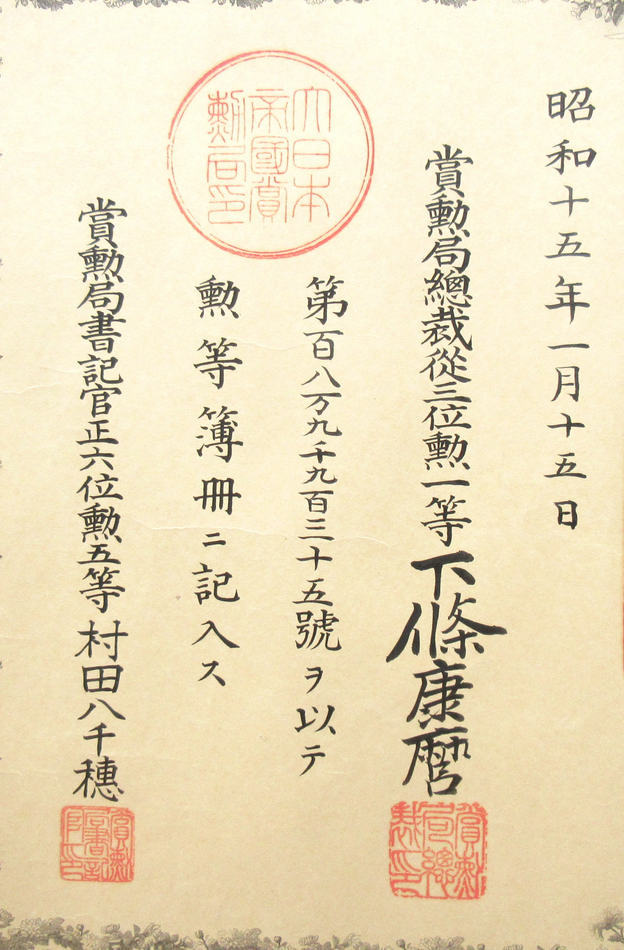 昭和十五年一月十五日
賞勲局總裁從三位勲一等下條康麿
第百八万九千九百三十五號ヲ以テ
勲等簿冊ニ記入ス
賞勲局書記官正六位勲五等村田八千穗
大日本
帝國賞
勲局印
賞勲
局總
裁印
賞勲
局書記
官印